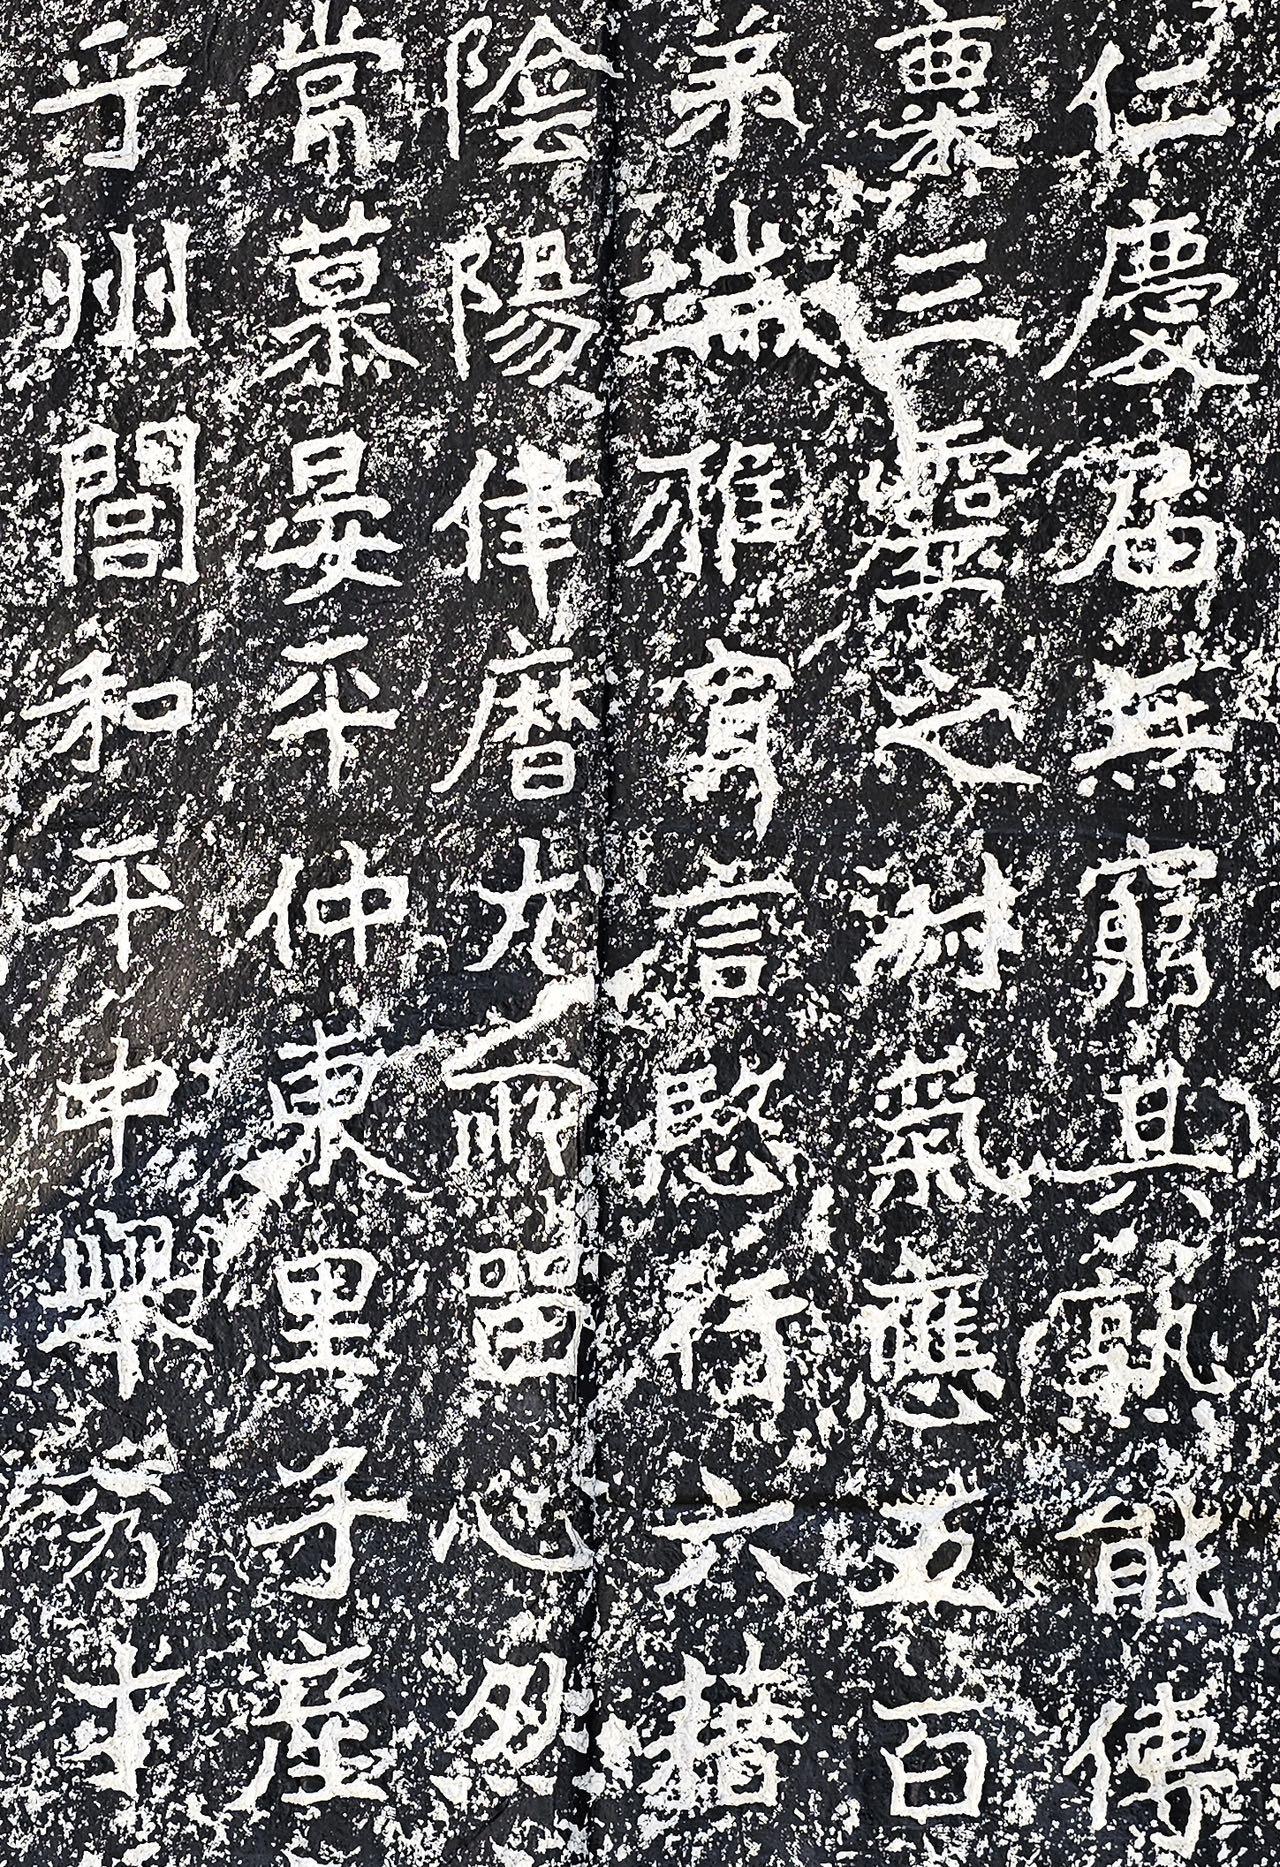 仁慶屆無窮其孰能傳
稟三靈之淑氣應五百
弟端雅寡言愍行六籍
陰陽律曆尤所留心然
常慕晏平仲東里子產
于州閭和平中舉秀才